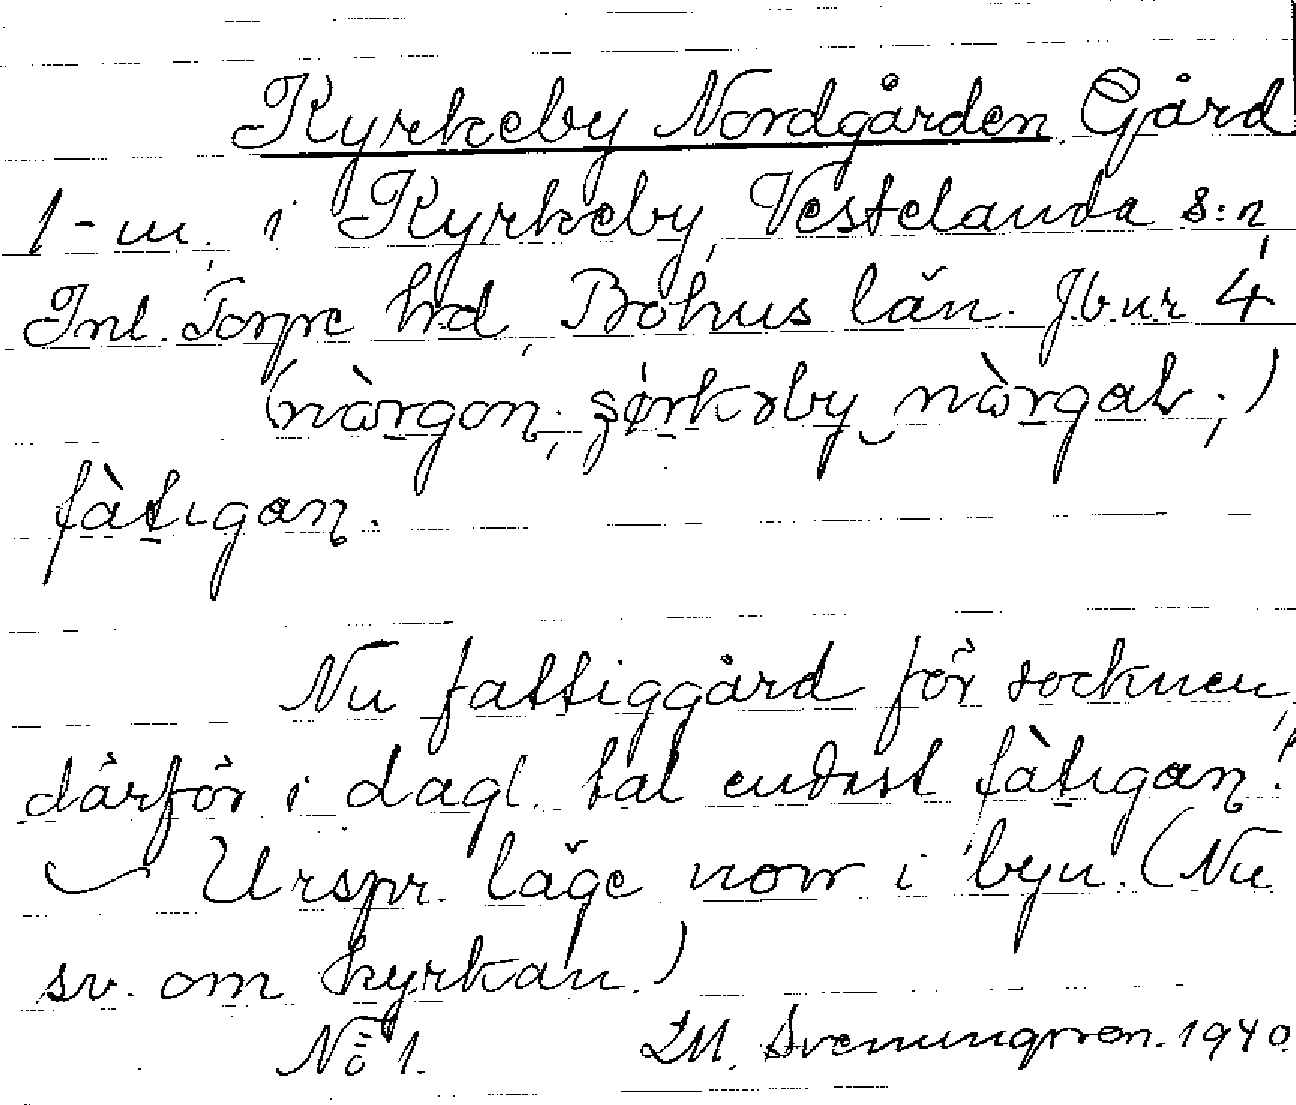 Kyrkeby Nordgården Gård
1-m. i Kyrkeby, Vestelanda s:n,
Inl. Torpe hd, Bohus län. Jb.nr 4
(nàrgon; ʂörkəby nàrgaḷ;)
fàtıgaṇ.
Nu fattiggård för socknen,
därför i dagl. tal endast fàtıgaṇ!
Urspr. läge norr i byn. (Nu
sv. om kyrkan.)
No 1. Sveningsson. 1940.